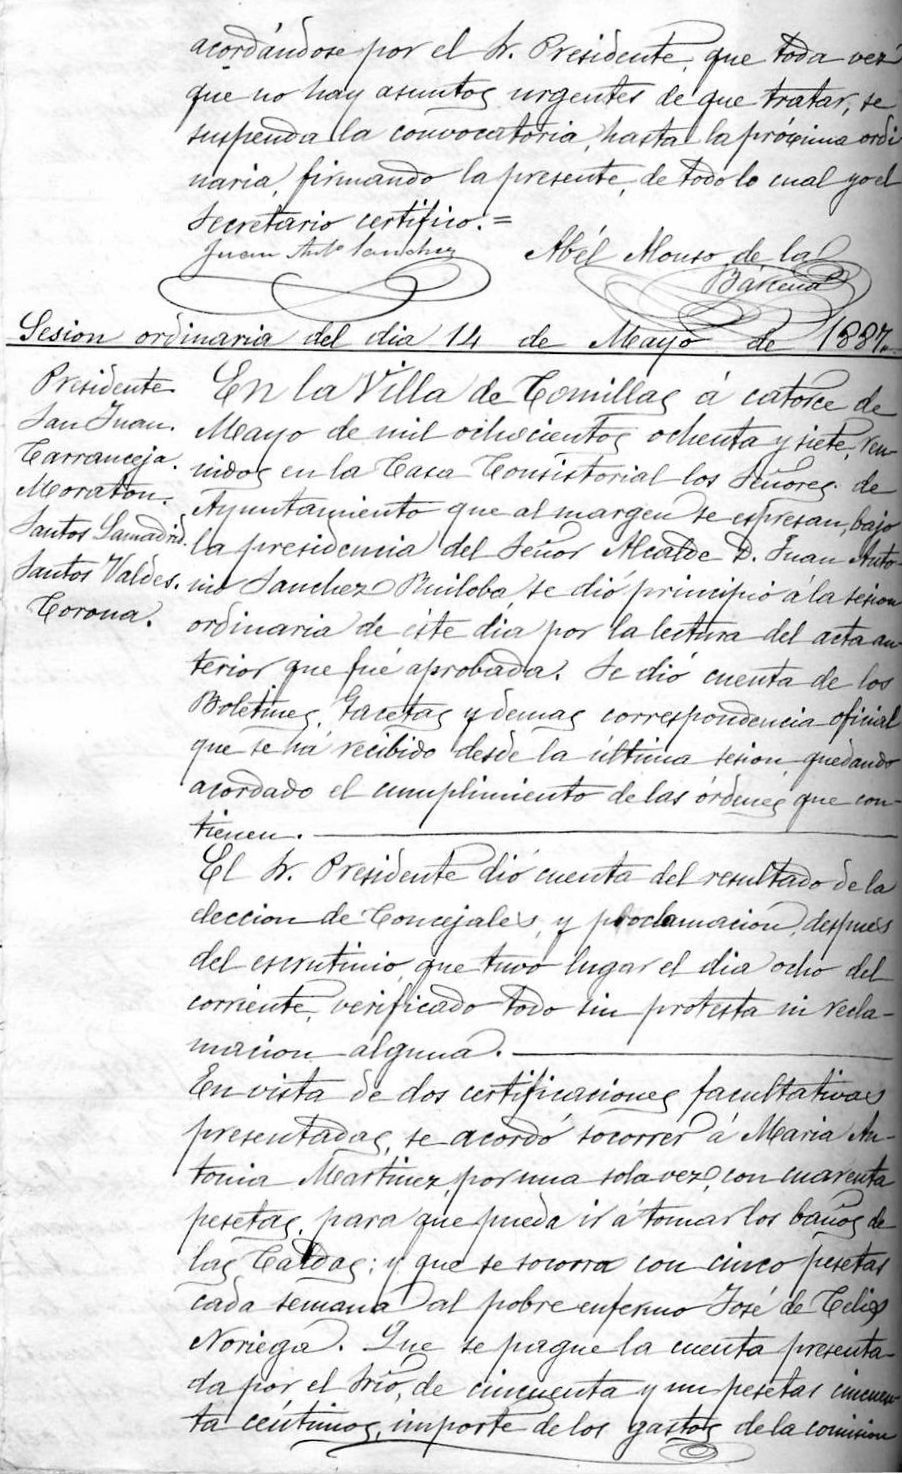 acordándose por el Sr. Presidente, que toda vez
que no hay asuntos urgentes de que tratar, se
suspenda la convocatoria, hasta la próxima ordi
naria, firmando la presente, de todo lo cual yo el
Secretario certifico.=
Juan Antº Sanchez
Abél Alonso de la
Bárcena
Sesion ordinaria del dia 14 de Mayo de 1887.
Presidente
San Juan.
Carranceja.
Moraton.
Santos Samadrid.
Santos Valdes.
Corona.
En la Villa de Comillas á catorce de
Mayo de mil ochocientos ochenta y siete, reu-
nidos en la Casa Consistorial los Señores de
Ayuntamiento que al margen se espresan, bajo
la presidencia del Señor Alcalde D. Juan Anto-
nio Sanchez Ruiloba se dió principio á la sesion
ordinaria de éste dia por la lectura del acta an
terior que fué aprobada. Se dió cuenta de los
Boletines, Gacetas y demas correspondencia oficial
que se há recibido desde la última sesion, quedando
acordado el cumplimiento de las órdenes que con-
tienen.
El Sr. Presidente dió cuenta del resultado de la
eleccion de Concejales, y proclamación, despues
del escrutinio, que tuvo lugar el dia ocho del
corriente, verificado todo sin protesta ni recla-
macion alguna.
En vista de dos certificaciones facultativas
presentadas, se acordó socorrer á Maria An-
tonia Martinez, por una sola vez, con cuarenta
pesetas, para que pueda ir á tomar los baños de
las Caldas; y que se socorra con cinco pesetas
cada semana al pobre enfermo José de Celis
Noriega. Que se pague la cuenta presenta-
da por el Srio, de cincuenta y un pesetas cincuen-
ta céntimos, importe de los gastos de la comision